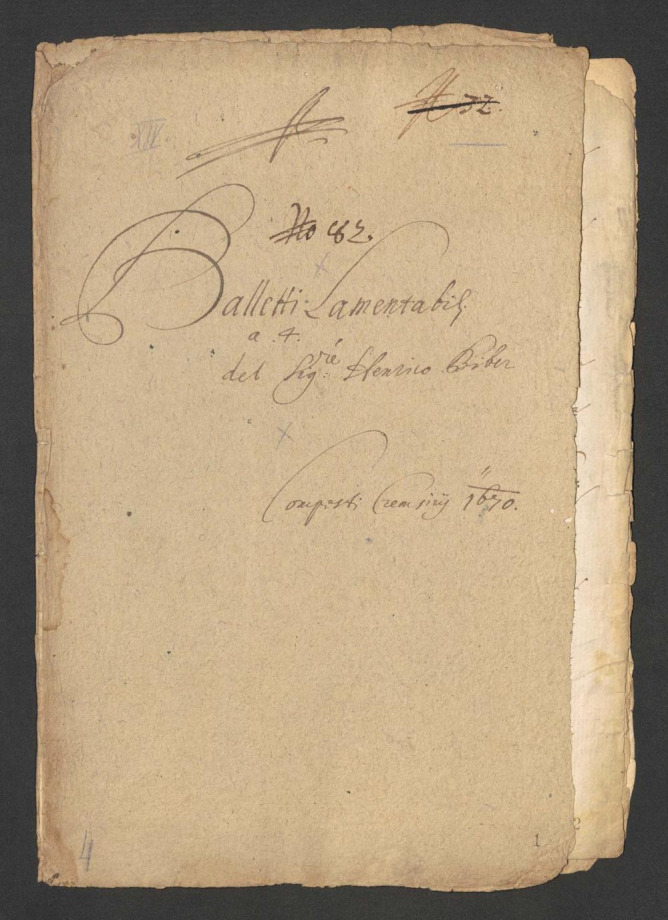 XIV.
N 32.
No 82.
Balletti Lamentabili
a. 4.
del Sig:re Henrico Biber
Composti Cremsirij 1670.
4
1
2